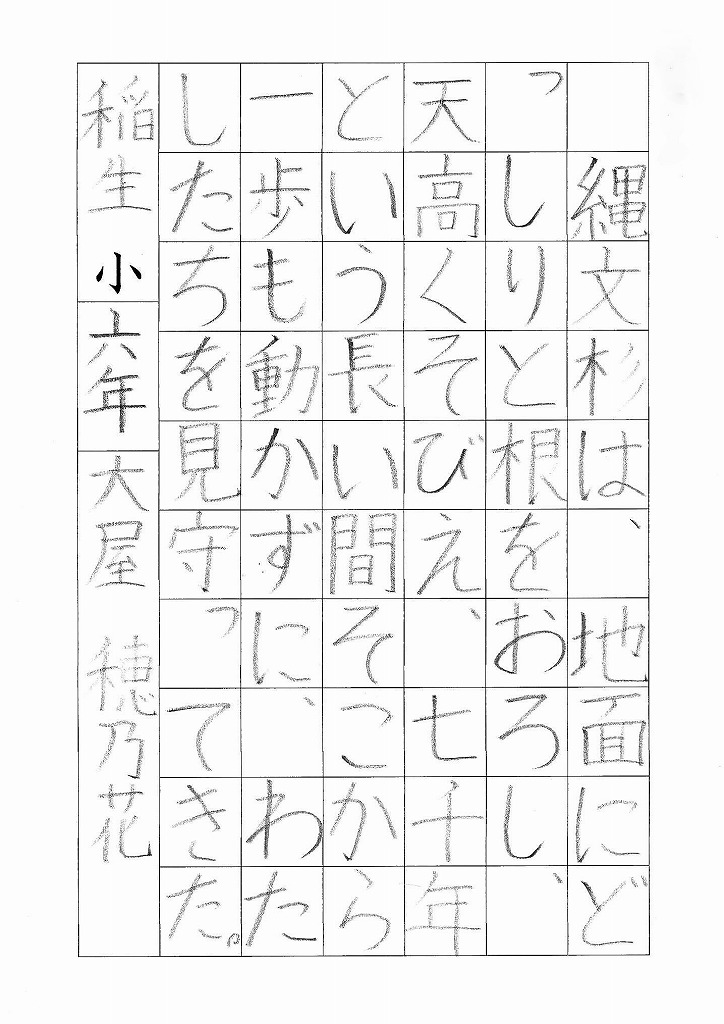 縄文杉は、地面にど
っしりと根をおろし、
天高くそびえ、七千年
という長い間そこから
一歩も動かずに、わた
したちを見守ってきた。
稲生小六年大屋穂乃花